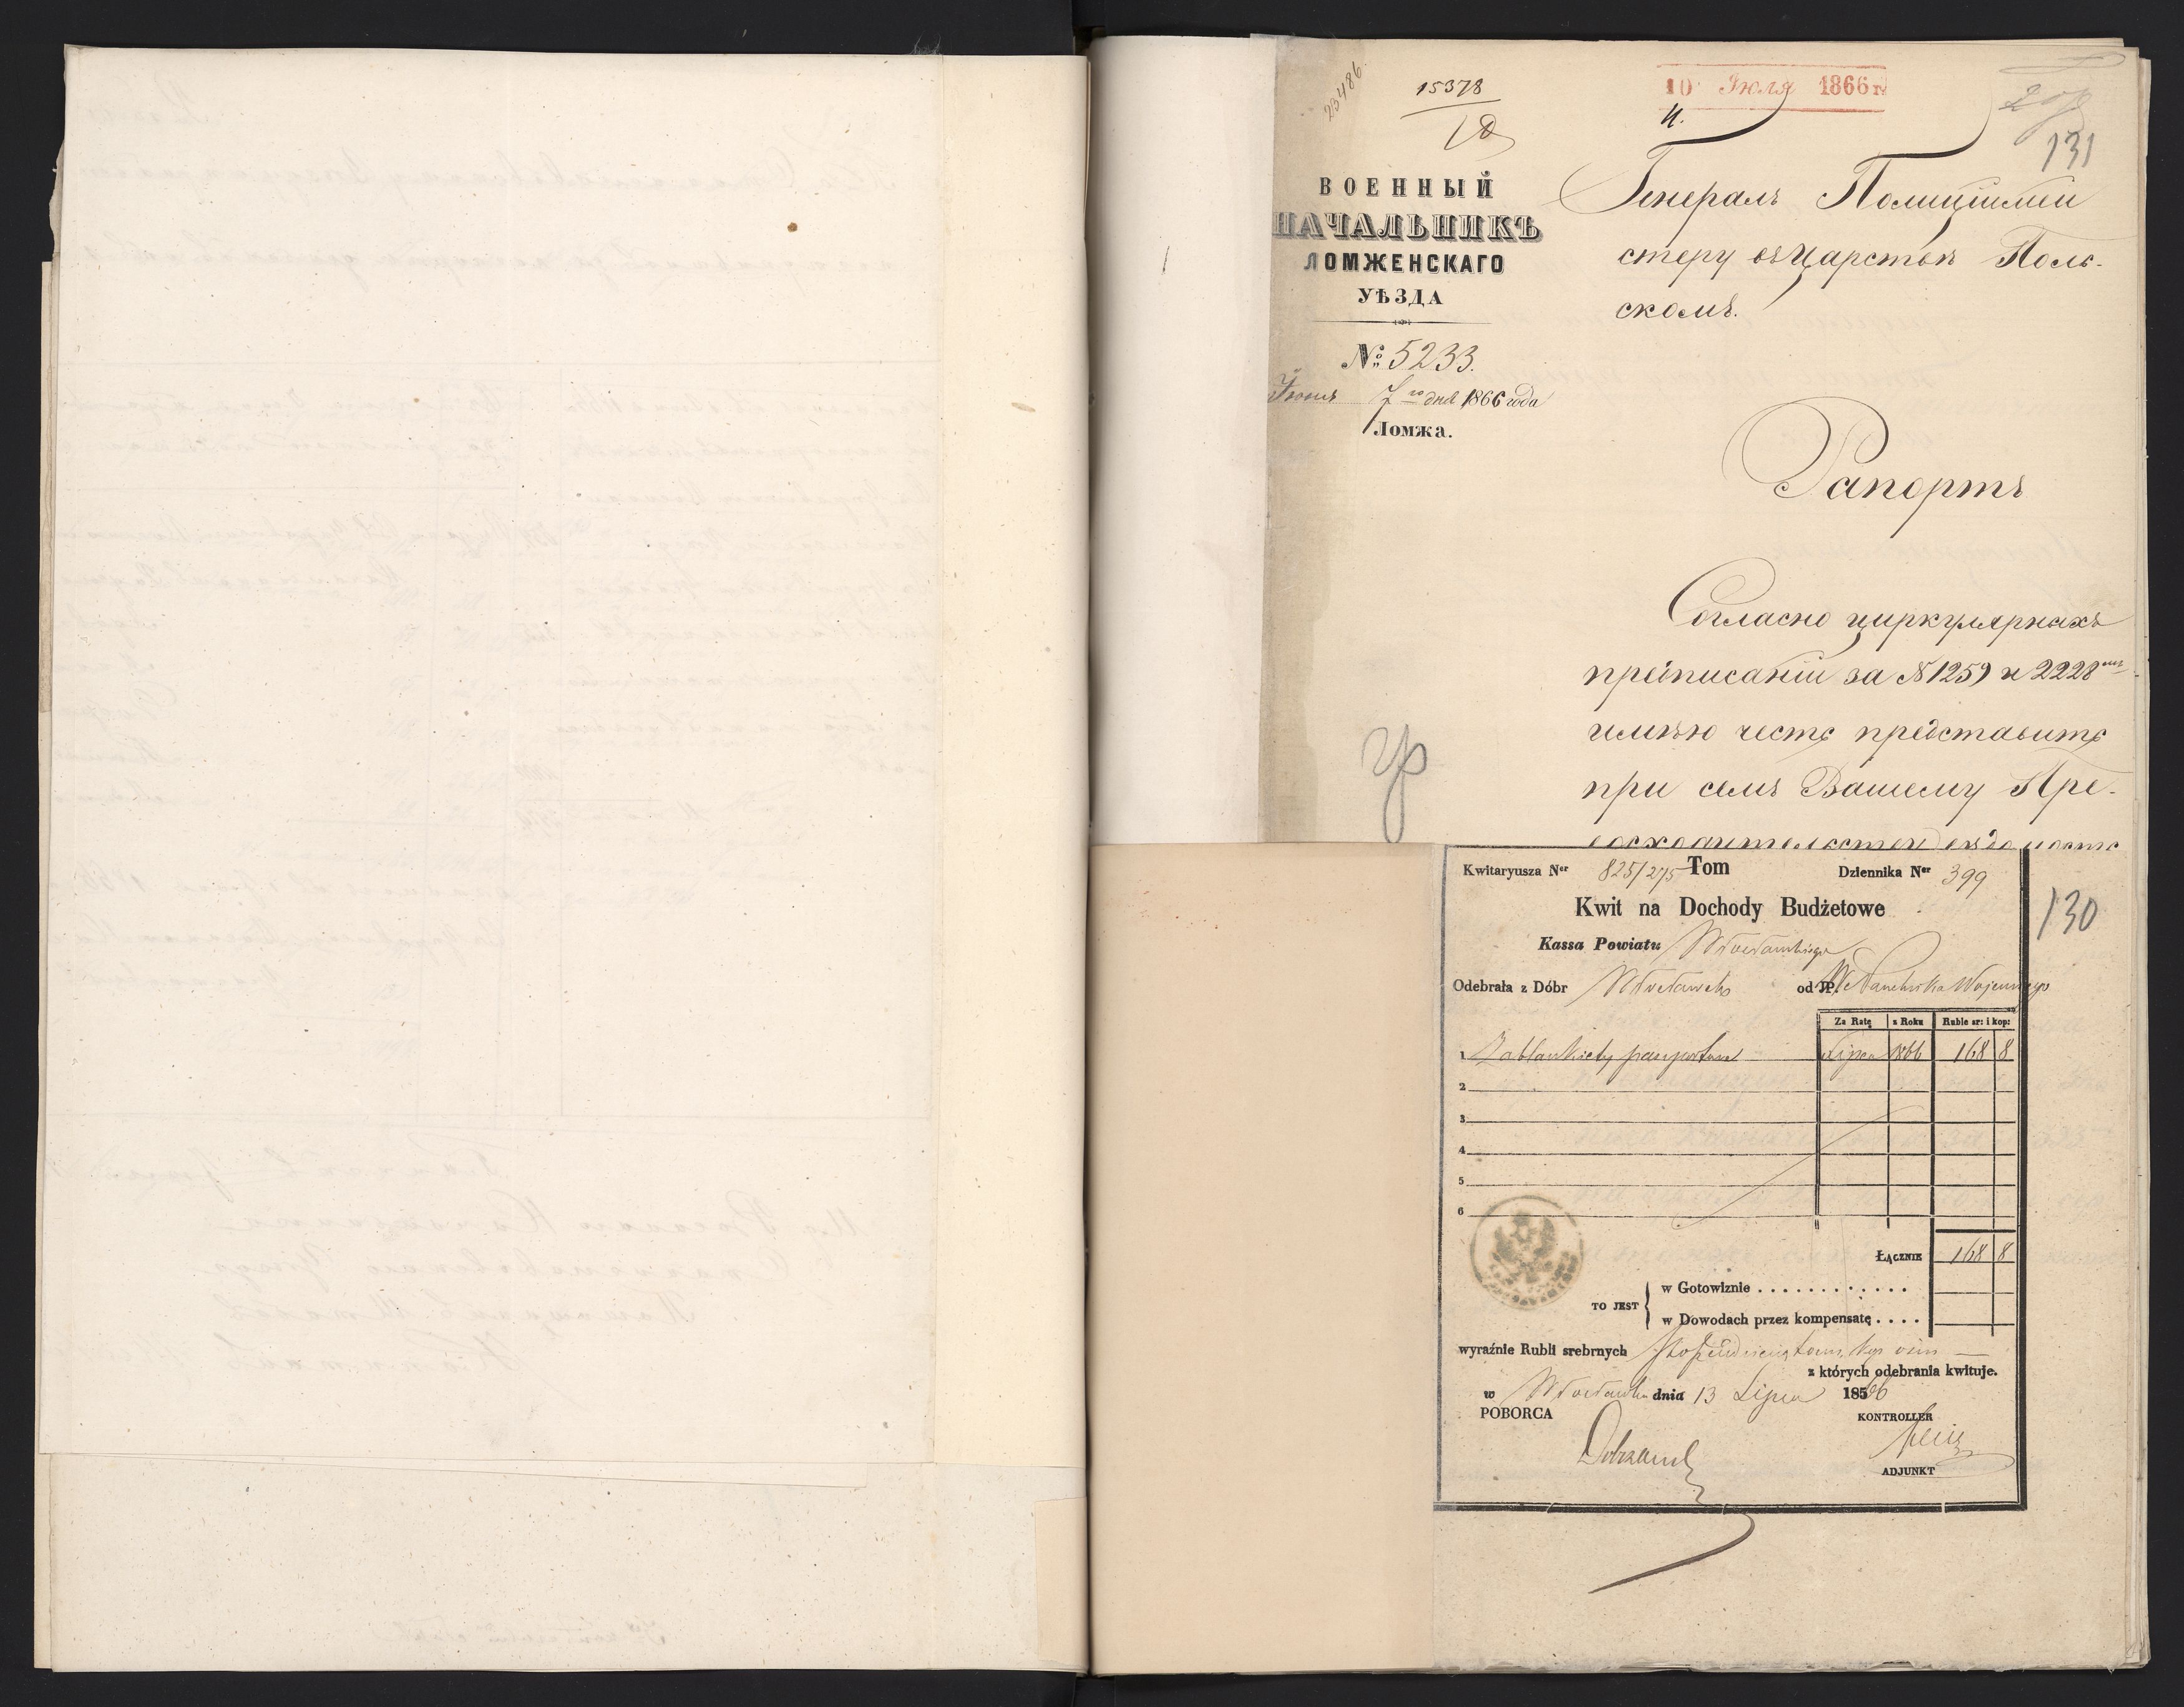 23486.
15378
10 Июля 1866 г.
131
ВОЕННЫЙ
НАЧАЛЬНИКЪ
ЛОМЖЕНСКАГО
УѢЗДА
№ 5233.
7го дня 1866 года
Ломжа.
Генералъ Полицiймей
стеру въ Царствѣ Поль-
скомъ.
Рапортъ
Согласно циркулярныхъ
предписанiй за № 1259 и 2228
имѣю честь представить
при семъ Вашему Пре-
восходительству
Kwitaryusza Ner 825/275 Tom Dziennika Ner 399
Kwit na Dochody Budżetowe
130
Kassa Powiatu Włocławskiego
Odebrała z Dóbr Włocławek od JP. Naczelnika Wojennego
Za Ratę z Roku Ruble sr: i kop:
1 Za blankiety paszportowe Lipca 1866 168 8
2
3
4
5
6
Łącznie 168 8
TO JEST
w Gotowiznie . . . . . . . . . . . .
w Dowodach przez kompensatę . . . .
wyraźnie Rubli srebrnych sto sześćdziesiąt osm, kop. osm
z których odebrania kwituje.
w Włocławku dnia 13 Lipca 1866
POBORCA KONTROLLER
ADJUNKT